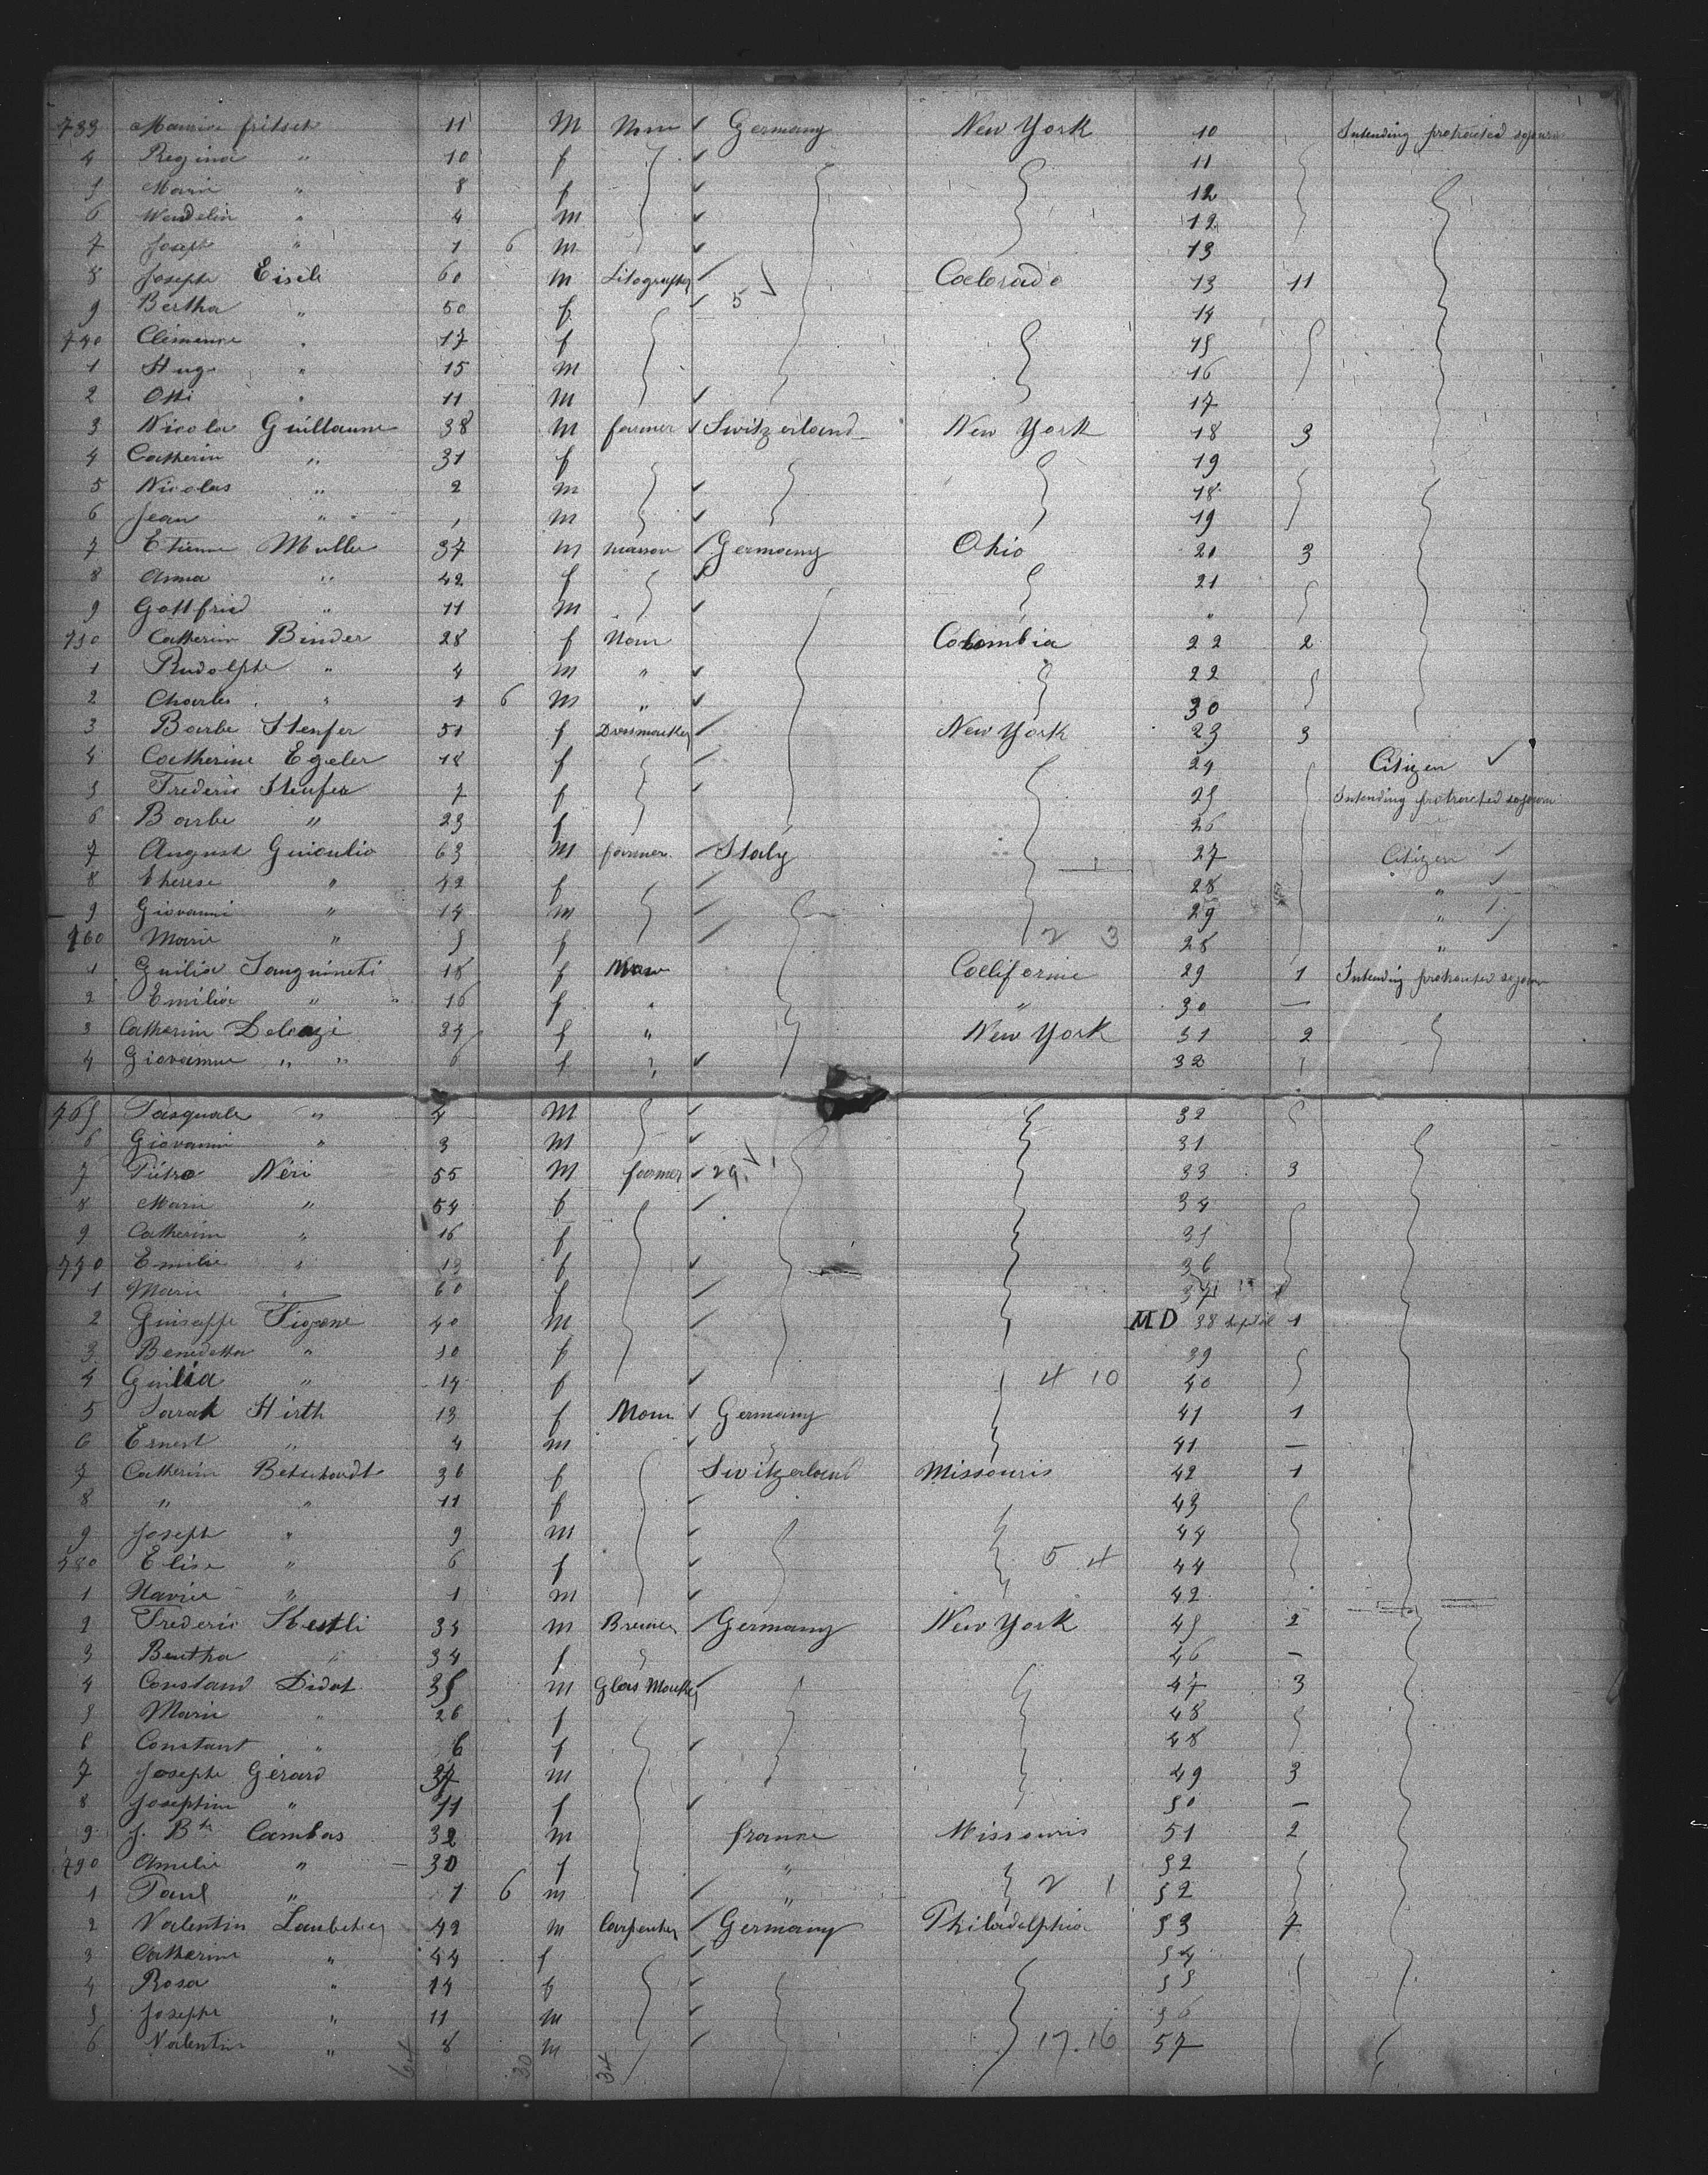 733 Maurice fritsch 11 M None ✓ Germany New York 10 Intending protracted sojourn
4 Regina " 10 f ✓ 11
5 Marie " 8 f ✓ 12
6 Wendelin " 4 m ✓ 12
7 Joseph " 1 6 m ✓ 13
8 Joseph Eisele 60 m Litographer ✓ Colorado 13 11
9 Bertha " 50 f ✓ 5 14
740 Clemence " 17 f 15
1 Hugo " 15 m 16
2 Otti " 11 m ✓ 17
3 Nicola Guillaume 38 m farmer ✓ Switzerland New York 18 3
4 Catherin " 31 f 19
5 Nicolas " 2 m ✓ 18
6 Jean " 1 m ✓ 19
7 Etienne Muller 37 m masson ✓ Germany Ohio 20 3
8 Anna " 42 f ✓ 21
9 Gottfried " 11 m ✓ "
750 Catherin Binder 28 f None Colombia 22 2
1 Rudolphe " 4 m " ✓ 22
2 Charles " 1 6 m " ✓ 30
3 Barbe Stenfer 51 f Dressmacker ✓ New York 23 3
4 Catherine Egeler 18 f ✓ 24 Citizen ✓
5 Frederic Stenfer 7 f ✓ 25 Intending protracted sojourn
6 Barbe " 23 f 26
7 August 63 m farmer ✓ Italy 27 Citizen ✓
8 Therese " 42 f ✓ 28 " ✓
9 Giovanni " 14 m ✓ 29 " ✓
760 Marie " 5 f ✓ 2 3 28 " ✓
1 Guilia Sanguineti 18 f None Californie 29 1 Intending protracted sojourn
2 Emilia " 16 f " " 30 —
3 Catherin 34 f " New York 31 2
4 Giovanne " " 6 f " ✓ 32
765 Pasquale " 4 M ✓ 32
6 Giovanni " 3 M ✓ 31
7 Piétro Néri 55 M farmer ✓ 29 33 3
8 Marie " 54 f ✓ 34
9 Catherin " 16 f 35
770 Emilie " 13 f ✓ 36
1 Marie " 60 f ✓ 37
2 Guiseppe 40 M ✓ MD 38 1
3 Benedetta " 10 f 39
4 Guilia " 14 f ✓ 4 10 40
5 Sarah Hirth 13 f None ✓ Germany 41 1
6 Ernest " 4 m ✓ 41 —
7 Catherin Betschardt 36 f Switzerland Missouris 42 1
8 " " 11 f ✓ 43
9 Joseph " 9 m ✓ 44
780 Elise " 6 f ✓ 5 4 44
1 Xavier " 1 m ✓ 42
2 Frederic 34 m Brewer ✓ Germany New York 45 2
3 Bertha " 34 f 46 —
4 Constand Didot 35 m Glas Macker ✓ 47 3
5 Marie " 26 f 48
6 Constant " 6 f ✓ 48
7 Joseph Gérard 37 m 49 3
8 Josephine " 11 f ✓ 50 —
9 J. Bte Cambas 32 m franne Missouris 51 2
790 Amelie " 30 f " 52
1 Paul " 1 6 m ✓ " 2 1 52
2 Valentin 42 m Carpenter ✓ Germany Philadelphia 53 7
3 Catherine " 44 f ✓ 54
4 Rosa " 14 f ✓ 55
5 Joseph " 11 m ✓ 56
6 Valentin " 8 m ✓ 17.16 57
64 30 34